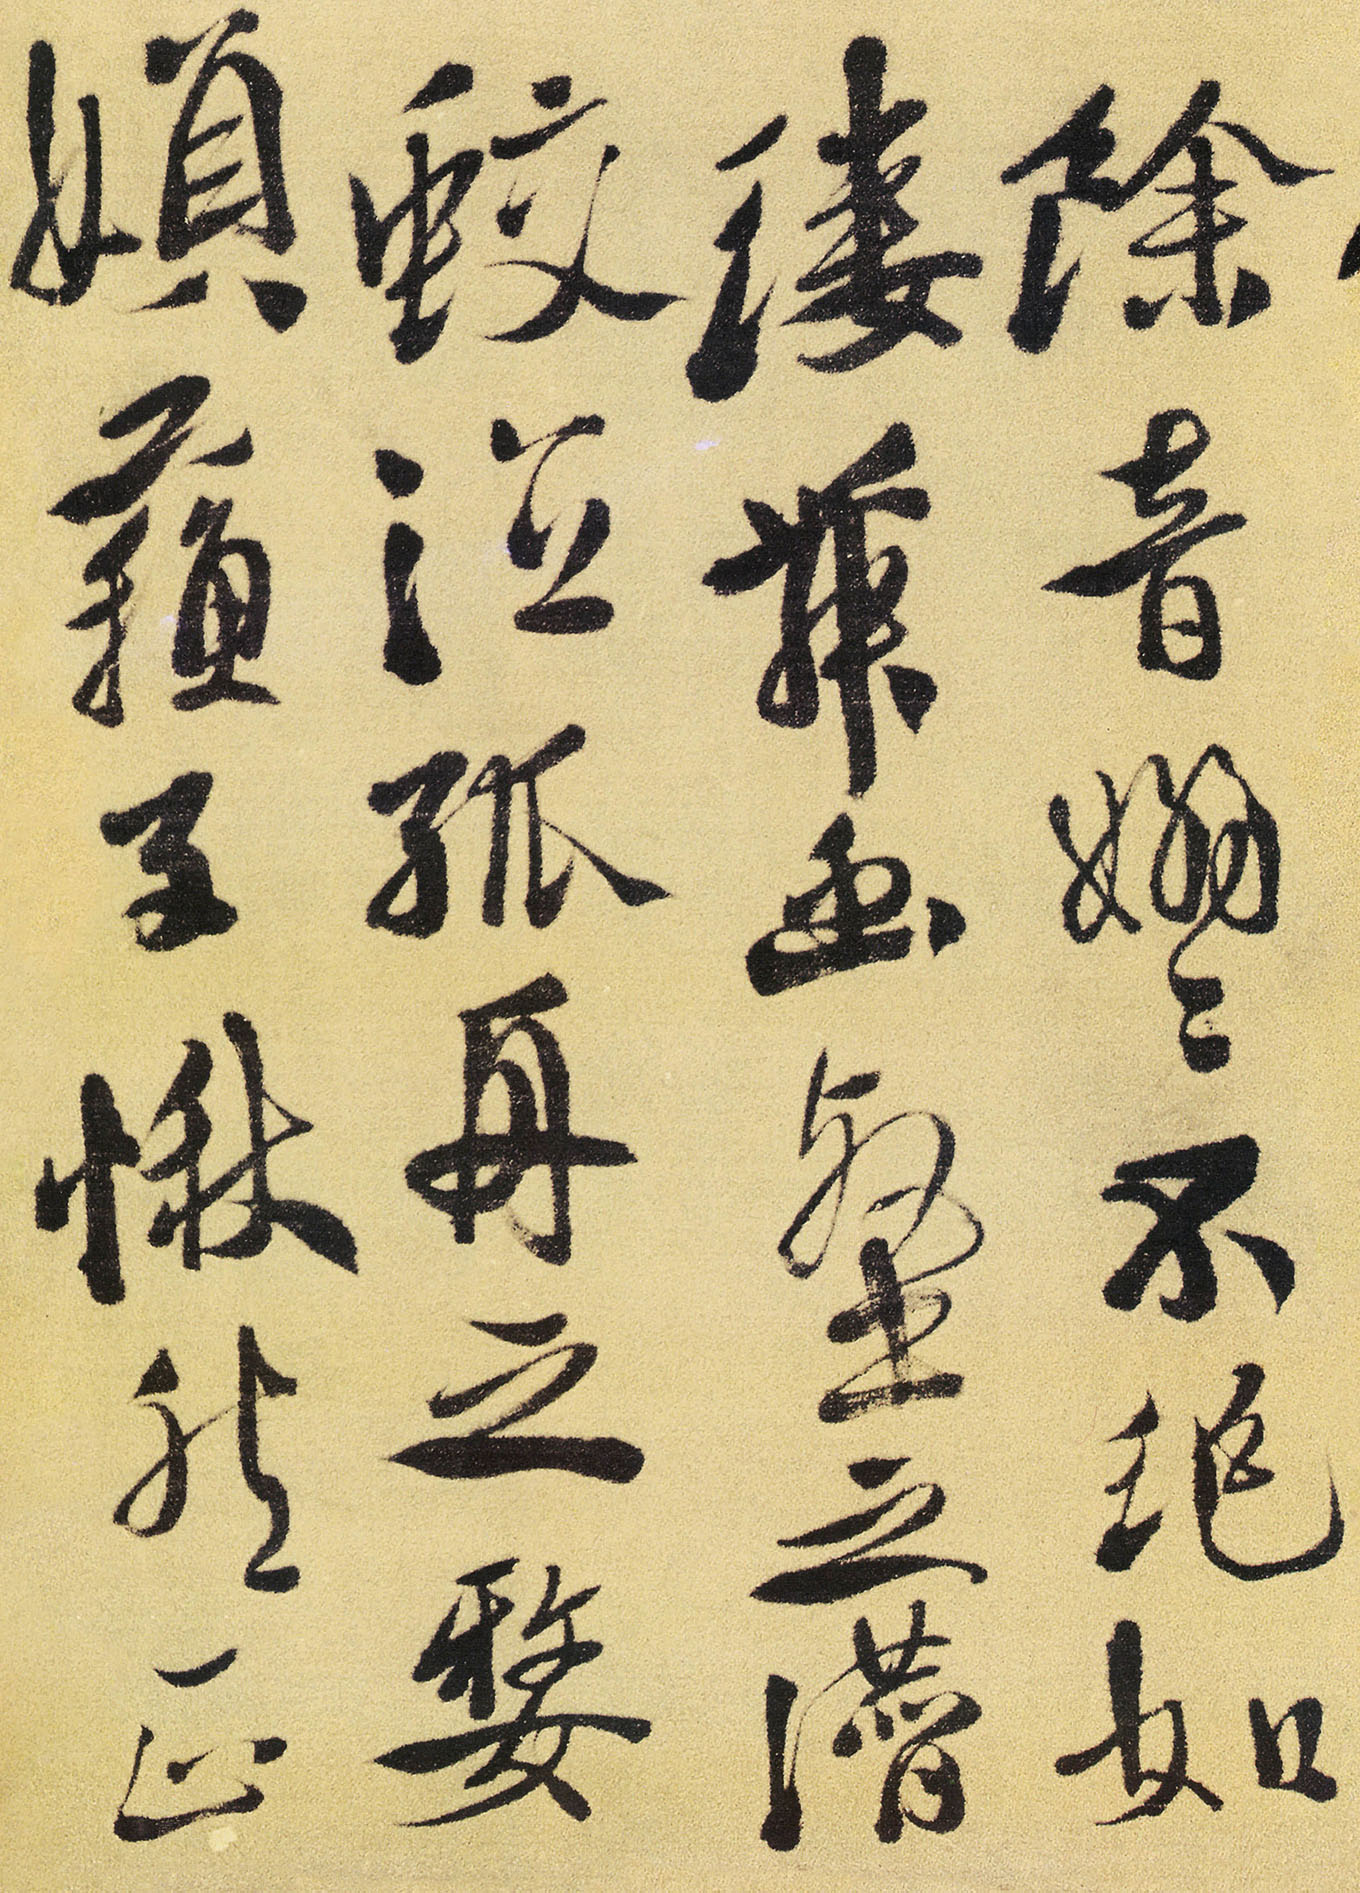 餘音嫋〻不絕如
縷舞幽壑之潛
蛟泣孤舟之嫠
婦蘇子愀然正